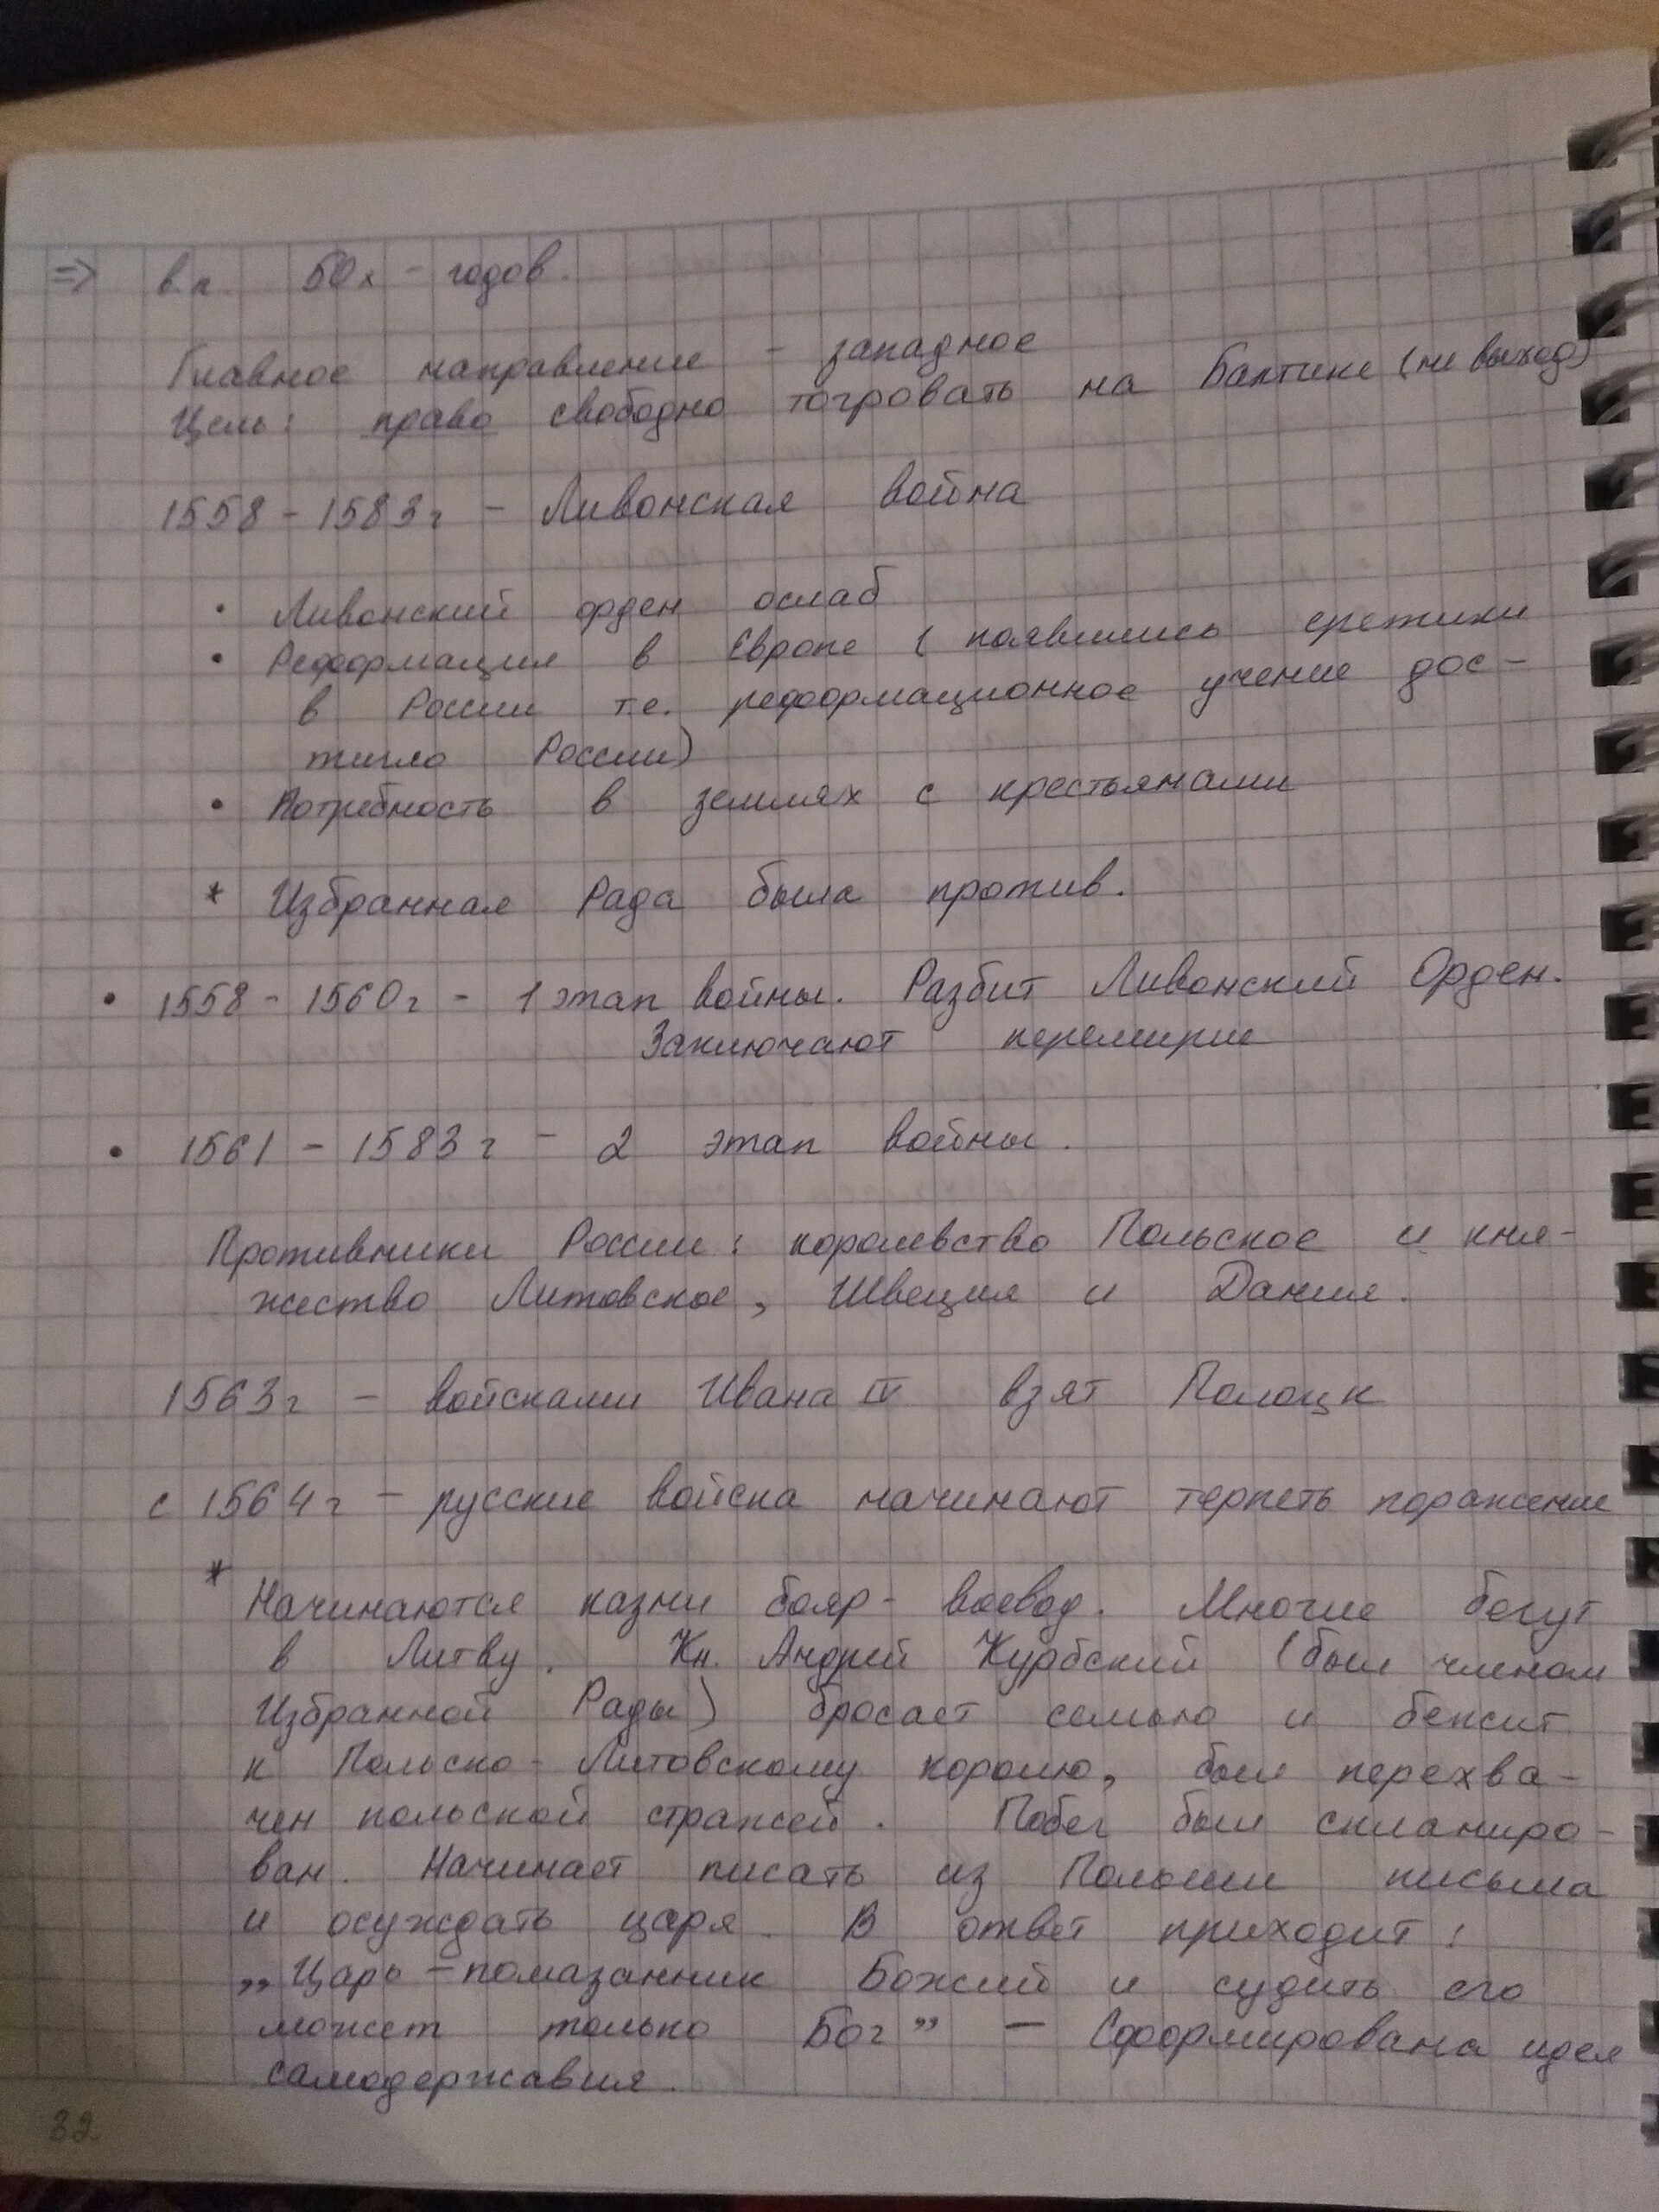 => в.п. 50х - годов.
Главное направление - западное
Цель: право свободно тогровать на Балтике (не выход)
1558 - 1583г - Ливонская война
• Ливонский орден ослаб
• Реформация в Европе ( появились еретики
в России т.е. реформационное учение дос-
тигло России)
• Потребность в землях с крестьянами
* Избранная Рада была против.
• 1558 - 1560г - 1 этап войны. Разбит Ливонский Орден.
Заключают перемирие
• 1561 - 1583г - 2 этап войны.
Противники России: королевство Польское и кня-
жество Литовское, Швеция и Дания.
1563г - войсками Ивана IV взят Полоцк
с 1564г - русские войска начинают терпеть поражение
* Начинаются казни бояр - воевод. Многие бегут
в Литву. Кн. Андрей Курбский (был членом
Избранной Рады) бросает семью и бежит
к Польско - Литовскому королю, был перехва-
чен польской стражей. Побег был спланиро-
ван. Начинает писать из Польши письма
и осуждать царя. В ответ приходит:
„Царь - помазанник Божий и судить его
может только Бог" - Сформирована идея
самодержавия.
32